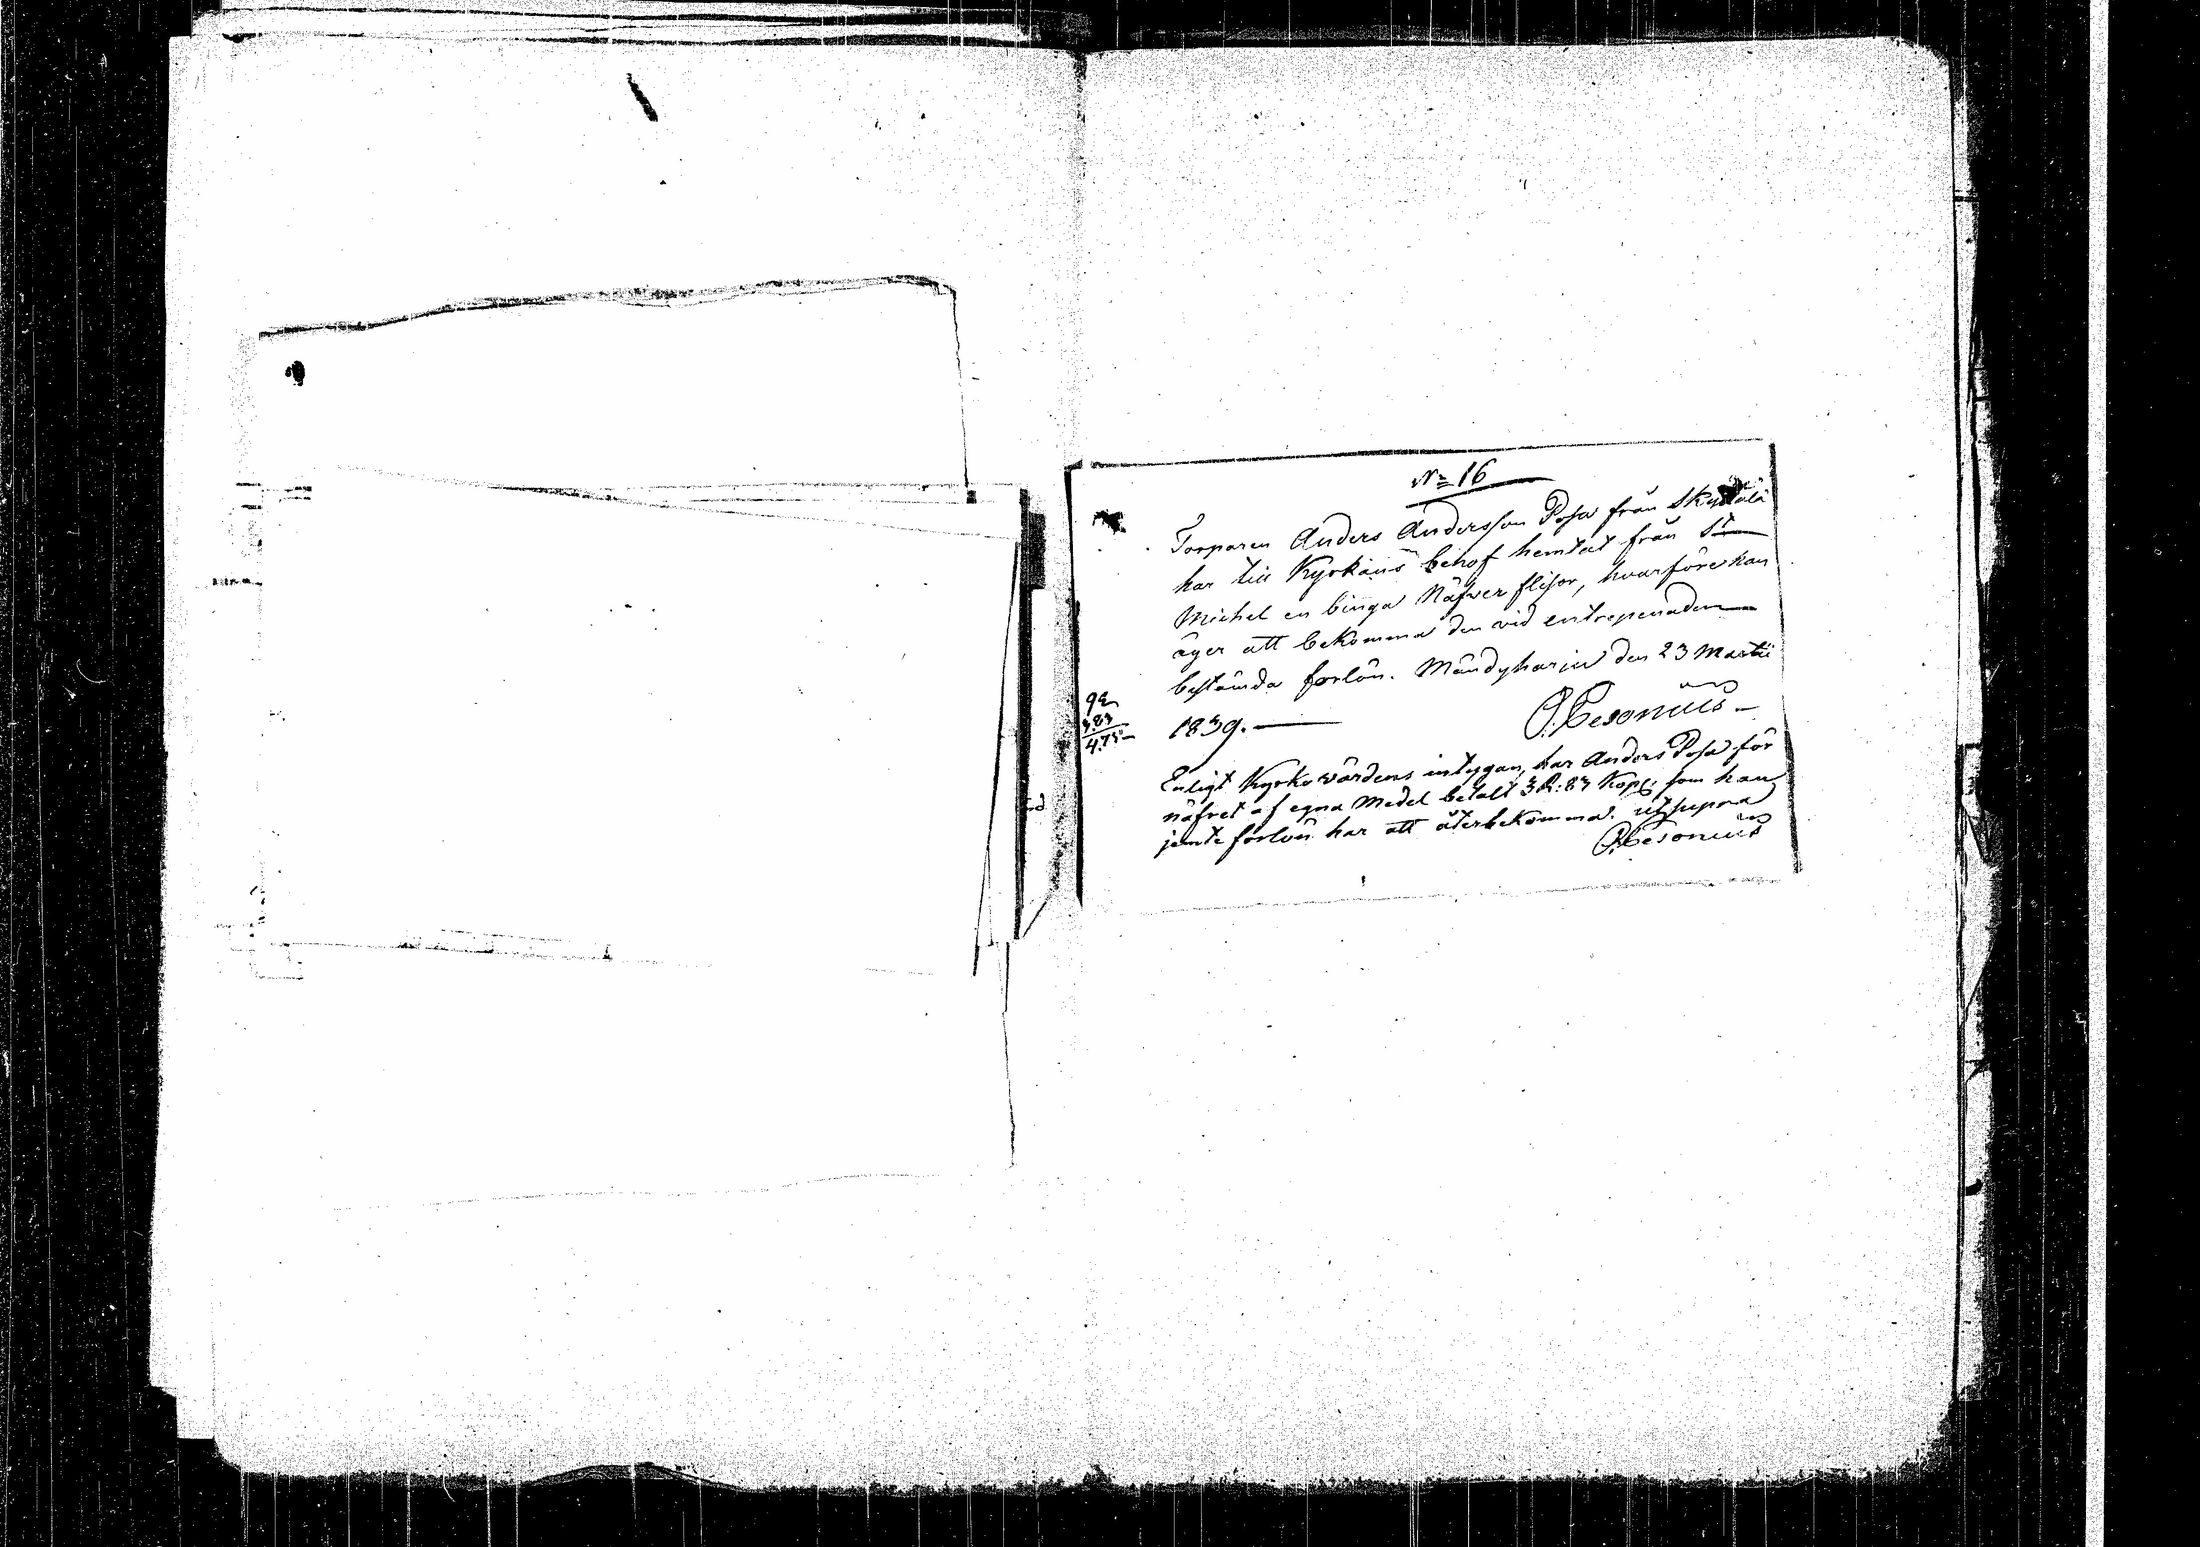 N= 16
Torparen Anders Andersson Posa från
har till Kyrkans behof hemtat från St
Michel en binga Näfver flisor, hvarföre han
äger att bekomma den vid entreprenaden
bestämda forlön. Mändyharju den 23 Martii
1839. P. Cesonius
92
3.83
4.75
Enligt Kyrkovärdens intygan, har Anders Posa för
näfret af egna Medel betalt 3 R: 83 Kop; som han
jemte forlön har att återbekomma. ut supra
P. Cesonius